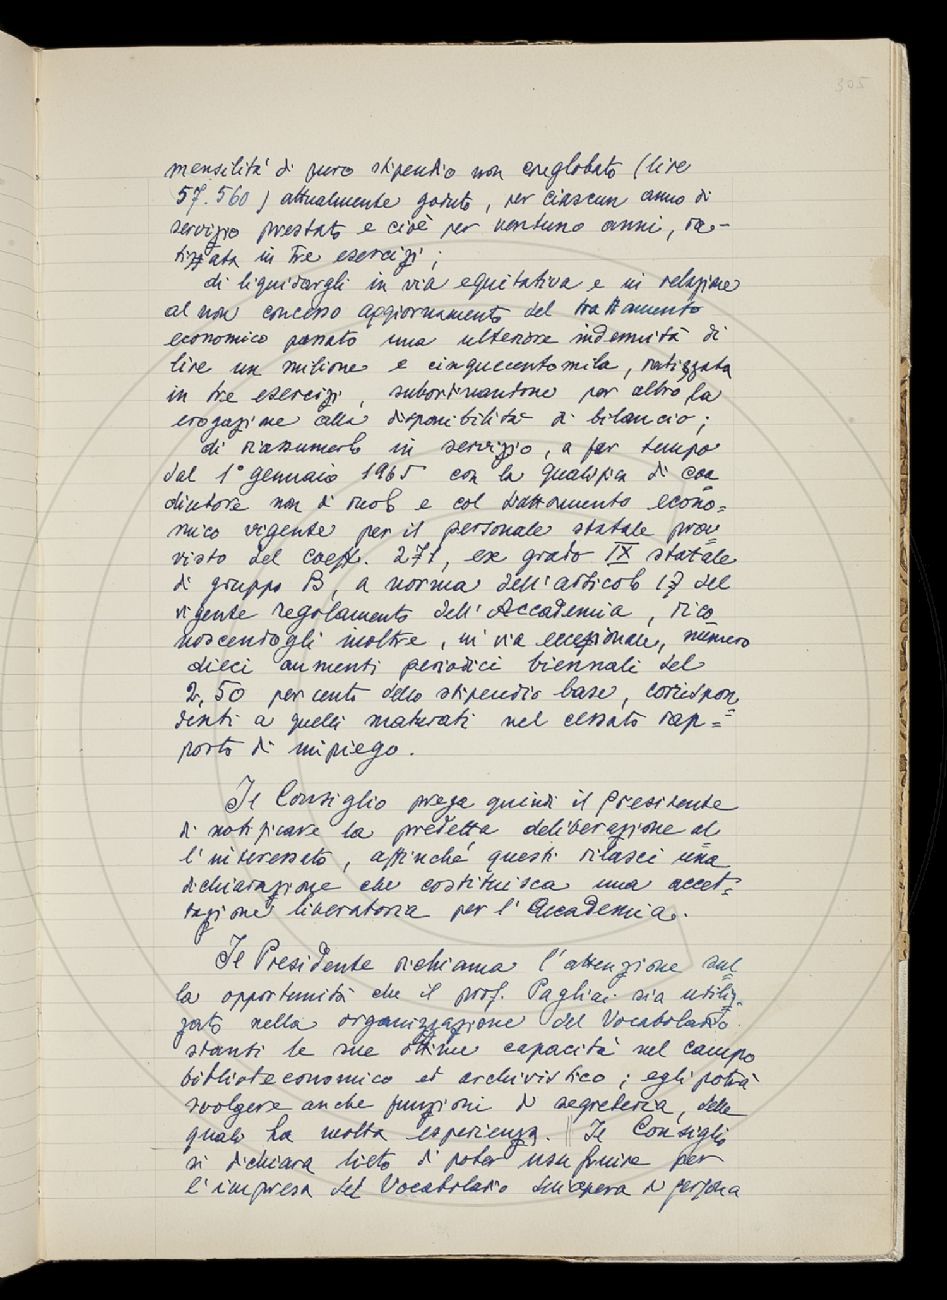 305
mensilità di puro stipendio non conglobato (lire
57.560) attualmente goduto, per ciascun anno di
servizio prestato e cioè per ventuno anni, ra-
tizzata in tre esercizi;
di liquidargli in via equitativa e in relazione
al non concesso aggiornamento del trattamento
economico passato una ulteriore indennità di
lire un milione e cinquecentomila, ratizzata
in tre esercizi, subordinandone per altro la
erogazione alla disponibilità di bilancio;
di riassumerlo in servizio, a far tempo
dal 1° gennaio 1965 con la qualifica di coa
diutore non di ruolo e col trattamento econo=
mico vigente per il personale statale prov
visto del coeff. 271, ex grado IX statale
di gruppo B, a norma dell'articolo 17 del
vigente regolamento dell'Accademia, rico
noscendogli inoltre, in via eccezionale, numero
dieci aumenti periodici biennali del
2,50 per cento dello stipendio base, corrispon=
denti a quelli maturati nel cessato rap=
porto di impiego.
Il Consiglio prega quindi il Presidente
di notificare la predetta deliberazione al
l'interessato, affinché questi rilasci una
dichiarazione che costituisca una accet=
tazione liberatoria per l'Accademia.
Il Presidente richiama l'attenzione sul
la opportunità che il prof. Pagliai sia utiliz=
zato nella organizzazione del Vocabolario
stanti le sue ottime capacità nel campo
biblioteconomico ed archivistico; egli potrà
svolgere anche funzioni di segreteria, della
quale ha molta esperienza. || Il Consiglio
si dichiara lieto di poter usufruire per
l'impresa del Vocabolario dell'opera di persona